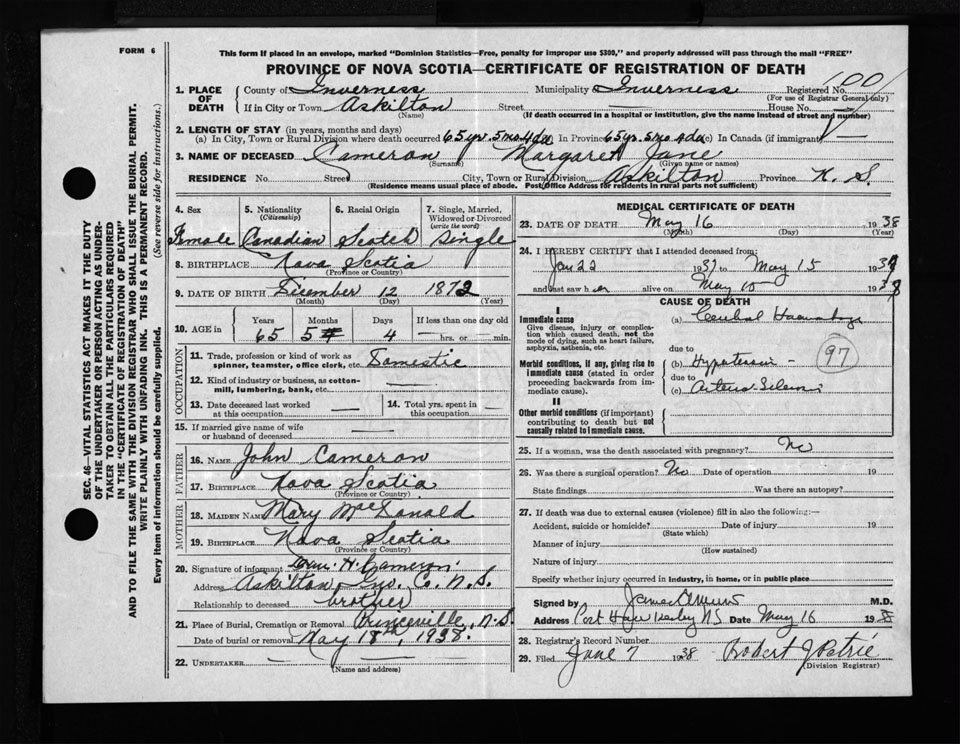 FORM 6
This form if placed in an envelope, marked "Dominion Statistics—Free, penalty for improper use $300," and properly addressed will pass through the mail "FREE"
PROVINCE OF NOVA SCOTIA—CERTIFICATE OF REGISTRATION OF DEATH
SEC. 46—VITAL STATISTICS ACT MAKES IT THE DUTY
OF THE UNDERTAKER OR PERSON ACTING AS UNDER-
TAKER TO OBTAIN ALL THE PARTICULARS REQUIRED
IN THE "CERTIFICATE OF REGISTRATION OF DEATH"
AND TO FILE THE SAME WITH THE DIVISION REGISTRAR WHO SHALL ISSUE THE BURIAL PERMIT.
WRITE PLAINLY WITH UNFADING INK. THIS IS A PERMANENT RECORD.
Every item of information should be carefully supplied. (See reverse side for instructions.)
1. PLACE OF DEATH County of Inverness Municipality Inverness Registered No.
(For use of Registrar General only)
If in City or Town Askilton Street House No.
(Name) (If death occurred in a hospital or institution, give the name instead of street and number)
2. LENGTH OF STAY (in years, months and days)
(a) In City, Town or Rural Division where death occurred 65 yr. 5 mo 4 da (b) In Province 65 yrs. 5 mo 4 da (c) In Canada (if immigrant)
3. NAME OF DECEASED Cameron Margaret Jane
(Surname) (Given name or names)
RESIDENCE No. Street City, Town or Rural Division Askilton Province N. S.
(Residence means usual place of abode. Post Office Address for residents in rural parts not sufficient)
4. Sex 5. Nationality (Citizenship) 6. Racial Origin 7. Single, Married, Widowed or Divorced (write the word)
Female Canadian Scotch Single
8. BIRTHPLACE Nova Scotia
(Province or Country)
9. DATE OF BIRTH December 12 1872
(Month) (Day) (Year)
10. AGE in Years Months Days If less than one day old
65 5 4 — hrs. or min.
OCCUPATION
11. Trade, profession or kind of work as spinner, teamster, office clerk, etc. Domestic
12. Kind of industry or business, as cotton-mill, lumbering, bank, etc. —
13. Date deceased last worked at this occupation — 14. Total yrs. spent in this occupation —
15. If married give name of wife or husband of deceased —
FATHER
16. Name John Cameron
17. Birthplace Nova Scotia
(Province or Country)
MOTHER
18. Maiden Name Mary MacDonald
19. Birthplace Nova Scotia
(Province or Country)
20. Signature of informant H. Cameron
Address Askilton Inv. Co. N. S.
Relationship to deceased brother
21. Place of Burial, Cremation or Removal Princeville, N. S.
Date of burial or removal May 18th, 1938.
22. UNDERTAKER —
(Name and address)
MEDICAL CERTIFICATE OF DEATH
23. DATE OF DEATH May 16 1938
(Month) (Day) (Year)
24. I HEREBY CERTIFY that I attended deceased from:
Jan 22 1937 to May 15 193
and last saw her alive on May 10 193
CAUSE OF DEATH
I
Immediate cause (a) Cerebral Haemorrhage
Give disease, injury or complication which caused death, not the mode of dying, such as heart failure, asphyxia, asthenia, etc.
due to
Morbid conditions, if any, giving rise to immediate cause (stated in order proceeding backwards from immediate cause).
(b) Hypertension
due to
(c) Arterio Sclerosis
97
II
Other morbid conditions (if important) contributing to death but not causally related to immediate cause.
25. If a woman, was the death associated with pregnancy? No
26. Was there a surgical operation? No Date of operation 19
State findings Was there an autopsy?
27. If death was due to external causes (violence) fill in also the following:—
Accident, suicide or homicide? Date of injury 19
(State which)
Manner of injury
(How sustained)
Nature of injury
Specify whether injury occurred in industry, in home, or in public place
Signed by James M.D.
Address Port Hawkesbury NS Date May 16 1938
28. Registrar's Record Number
29. Filed June 7 1938 Robert J Petrie
(Division Registrar)